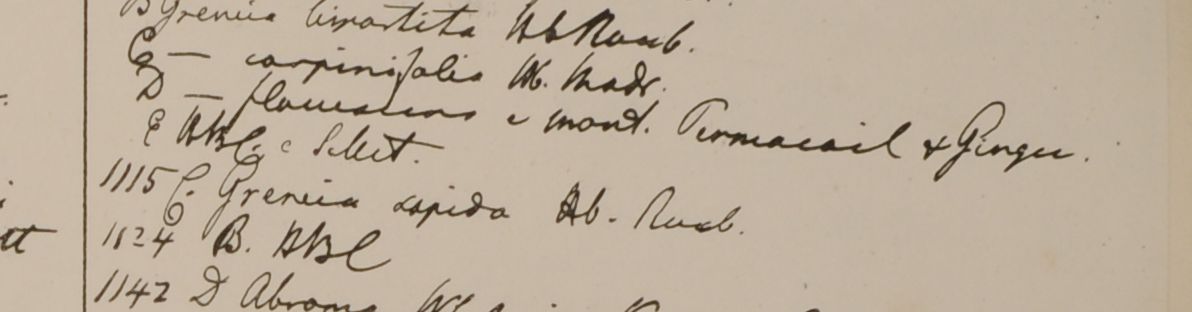 B Grewia bipartita Hb Roxb.
C — carpinifolia Hb. Madr.
D — flavescens e mont. Permacoil & Gingee.
E HBC. e Silhet.
1115 C. Grewia sapida Hb. Roxb.
1124 B. HBC
1142 D Abroma